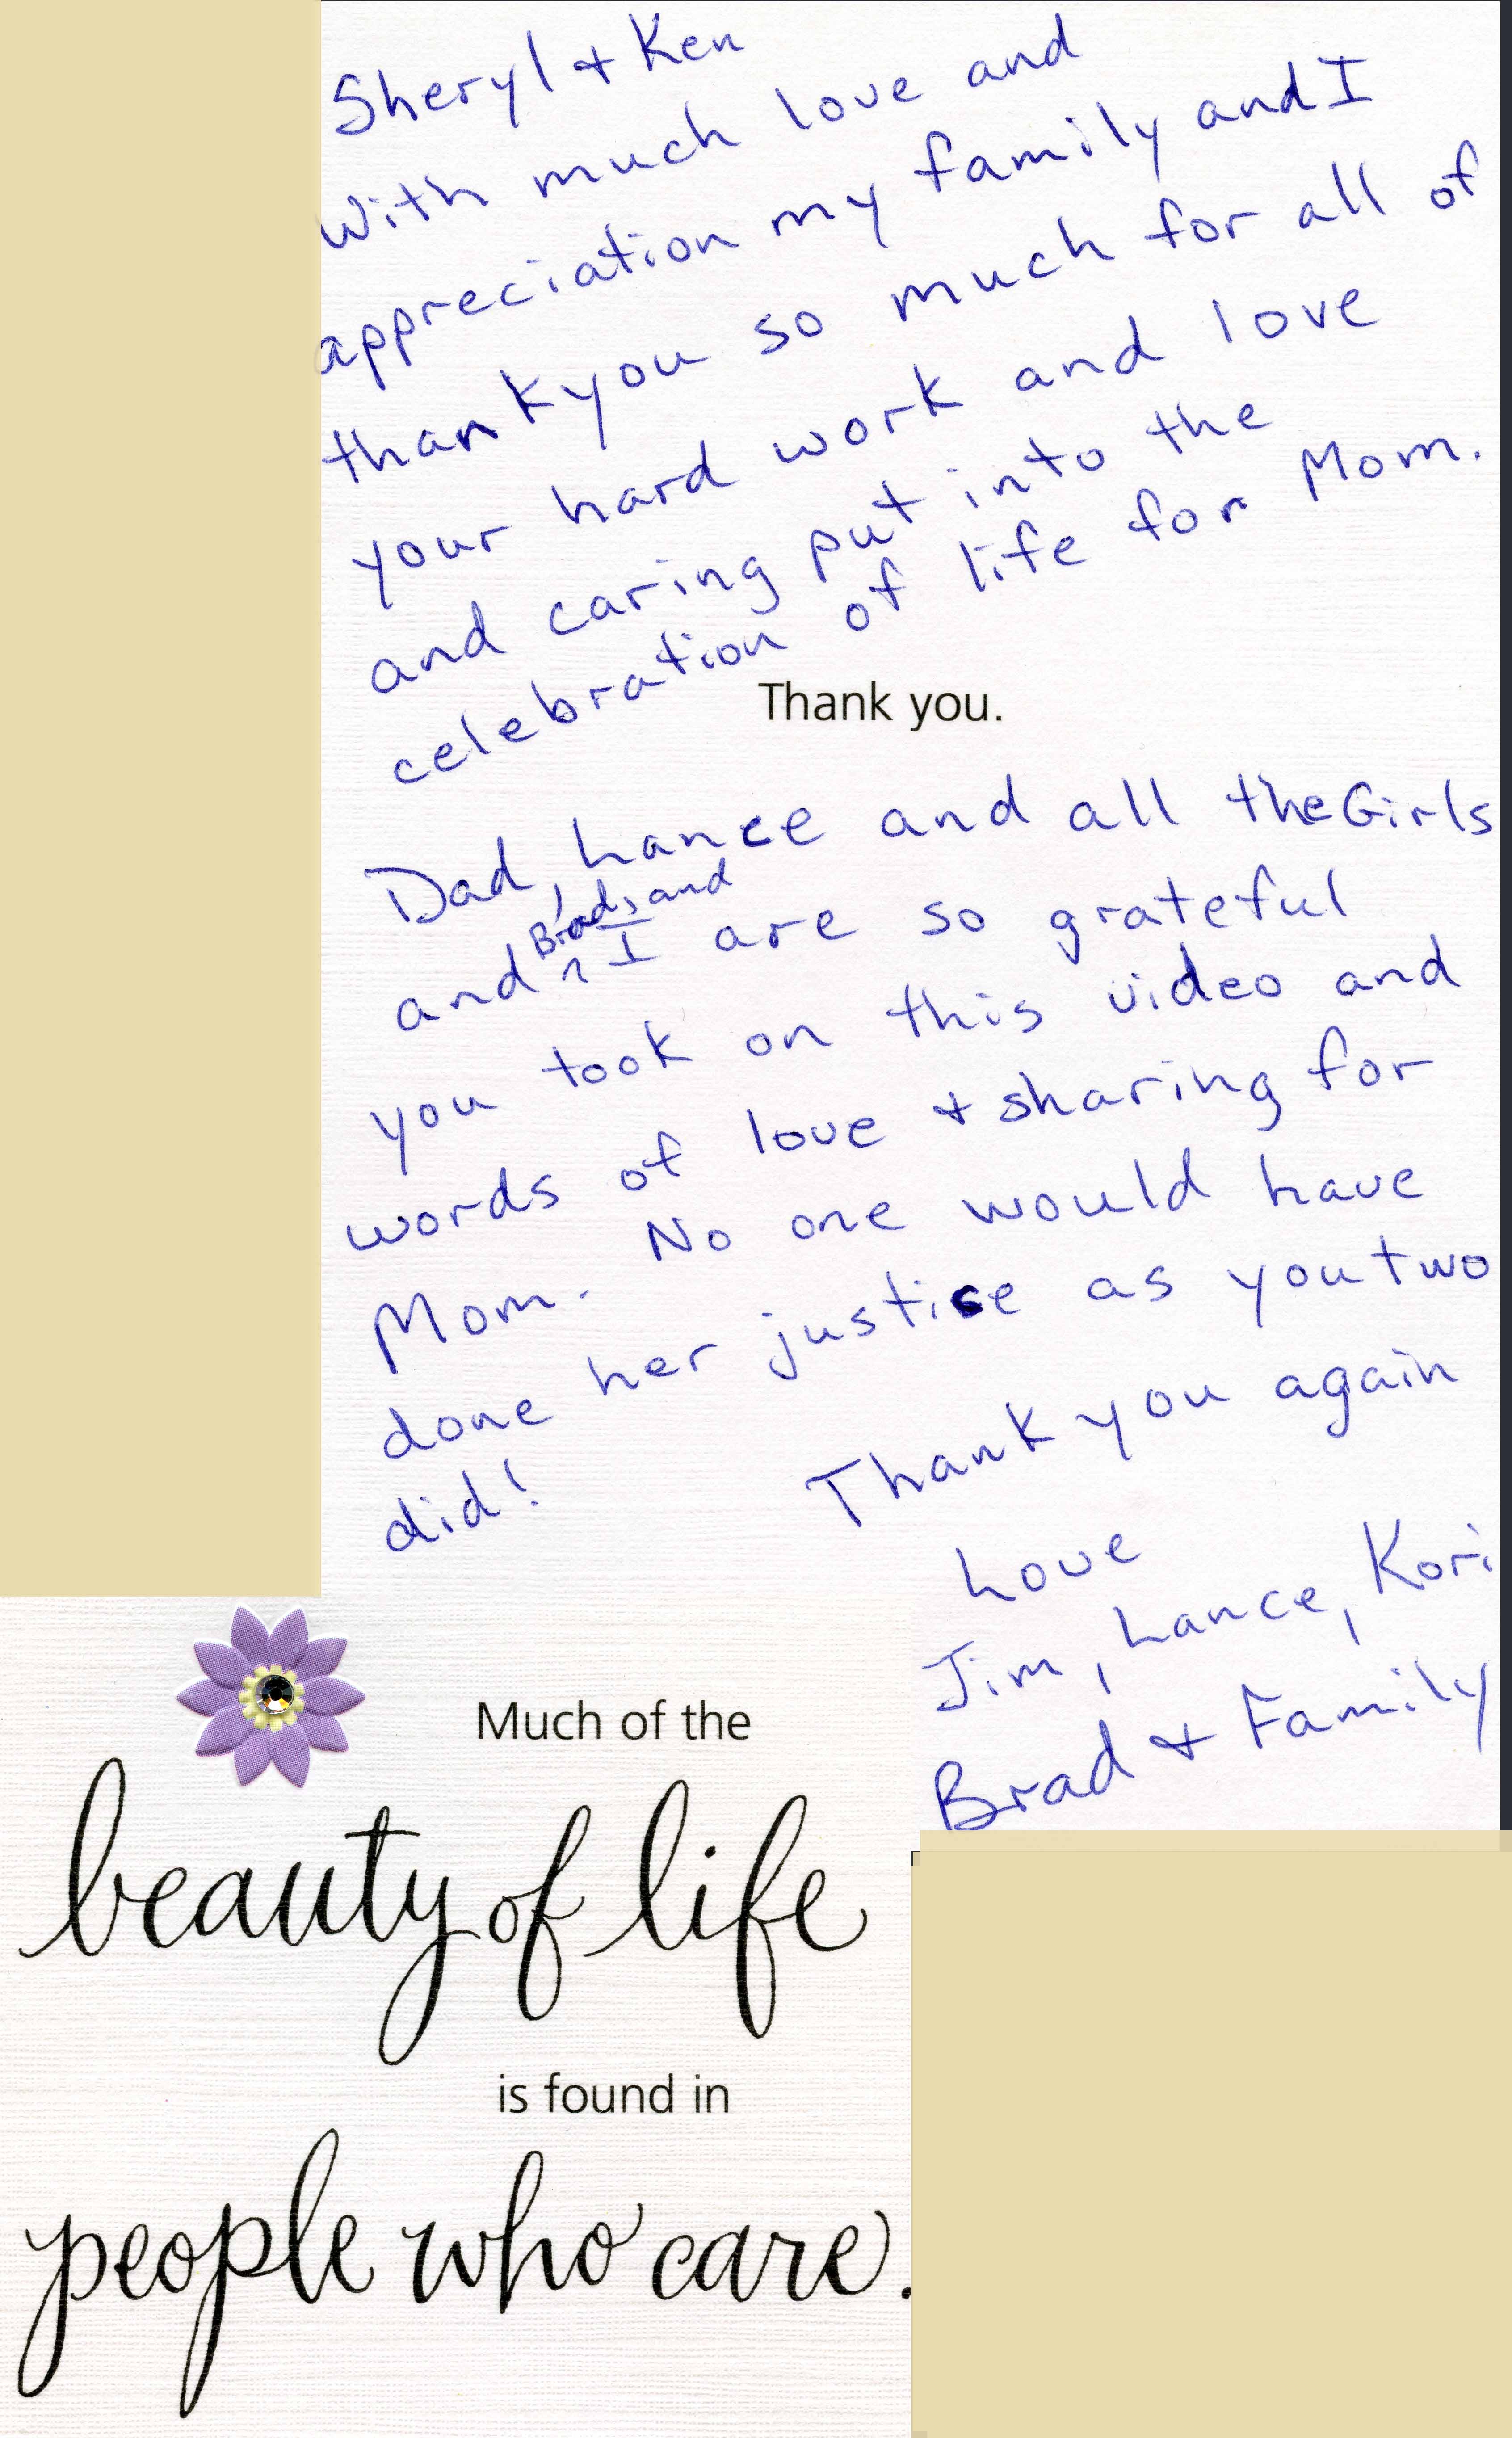 Sheryl + Ken
With much love and
appreciation my family and I
thank you so much for all of
your hard work and love
and caring put into the
celebration of life for Mom.
Thank you.
Dad, Lance and all the Girls
and Brad, and I are so grateful
you took on this video and
words of love + sharing for
Mom. No one would have
done her justice as you two
did!
Thank you again
Love
Jim, Lance, Kori
Brad + Family
Much of the
beauty of life
is found in
people who care.